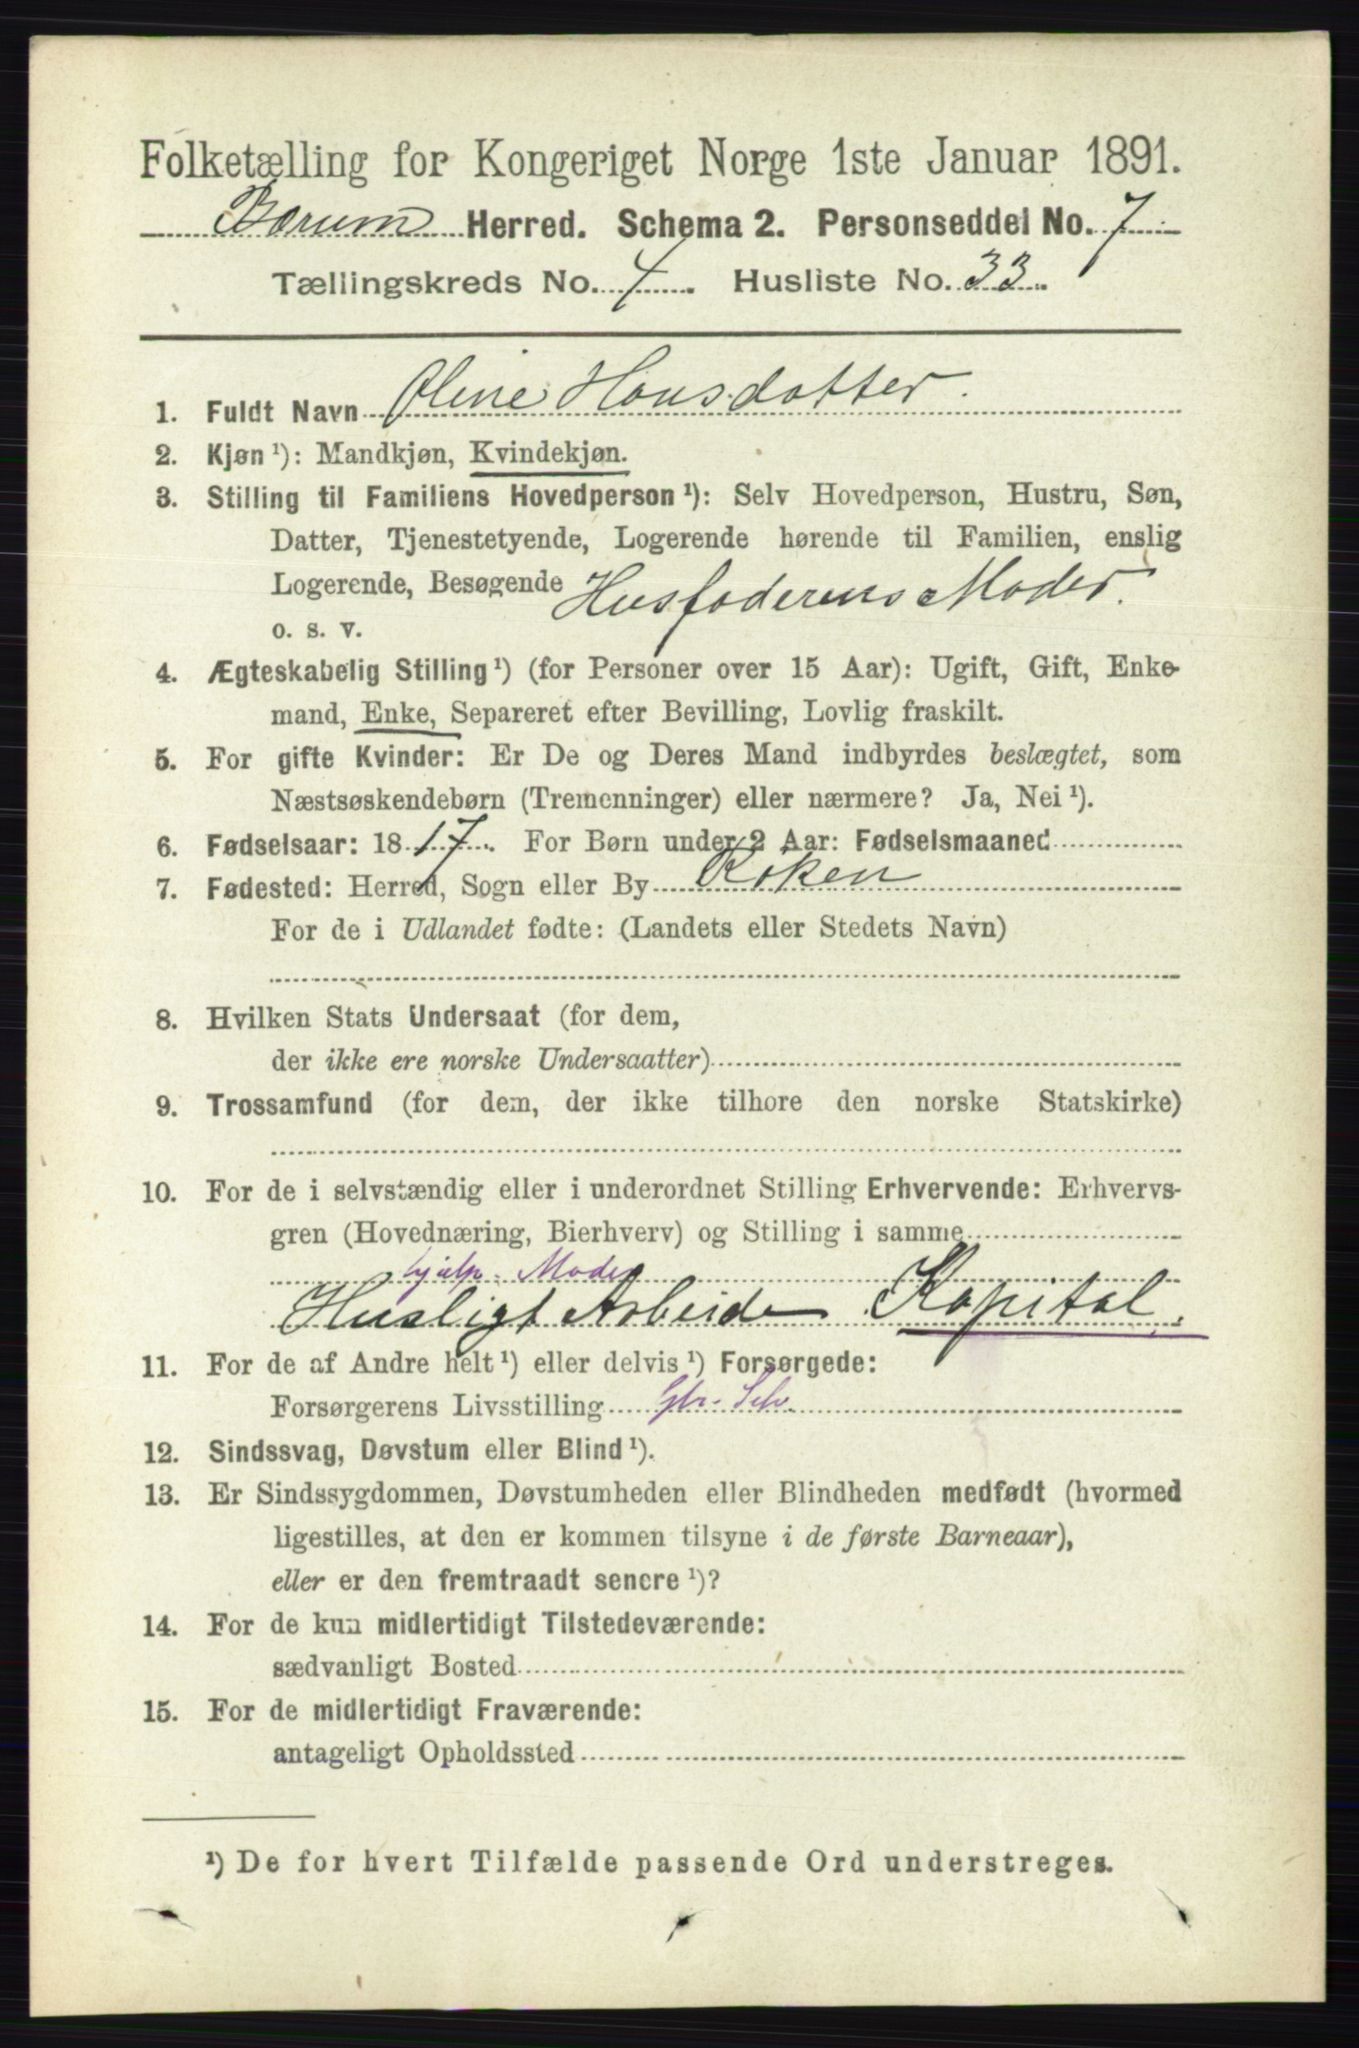 Folketælling for Kongeriget Norge 1ste Januar 1891.
Bærum Herred. Schema 2. Personseddel No. 7
Tællingskreds No. 4. Husliste No. 33.
1. Fuldt Navn Oline Hansdatter.
2. Kjøn ¹): Mandkjøn, Kvindekjøn.
3. Stilling til Familiens Hovedperson ¹): Selv Hovedperson, Hustru, Søn,
Datter, Tjenestetyende, Logerende hørende til Familien, enslig
Logerende, Besøgende Husfaderens Moder.
o. s. v.
4. Ægteskabelig Stilling ¹) (for Personer over 15 Aar): Ugift, Gift, Enke-
mand, Enke, Separeret efter Bevilling, Lovlig fraskilt.
5. For gifte Kvinder: Er De og Deres Mand indbyrdes beslægtet, som
Næstsøskendebørn (Tremenninger) eller nærmere? Ja, Nei ¹).
6. Fødselsaar: 1817. For Børn under 2 Aar: Fødselsmaaned
7. Fødested: Herred, Sogn eller By Røken
For de i Udlandet fødte: (Landets eller Stedets Navn)
8. Hvilken Stats Undersaat (for dem,
der ikke ere norske Undersaatter)
9. Trossamfund (for dem, der ikke tilhore den norske Statskirke)
10. For de i selvstændig eller i underordnet Stilling Erhvervende: Erhvervs-
gren (Hovednæring, Bierhverv) og Stilling i samme
hjælp. Moder
Husligt Arbeide Kapital.
11. For de af Andre helt ¹) eller delvis ¹) Forsørgede:
Forsørgerens Livsstilling Selv.
12. Sindssvag, Døvstum eller Blind ¹).
13. Er Sindssygdommen, Døvstumheden eller Blindheden medfødt (hvormed
ligestilles, at den er kommen tilsyne i de første Barneaar),
eller er den fremtraadt senere ¹)?
14. For de kun midlertidigt Tilstedeværende:
sædvanligt Bosted
15. For de midlertidigt Fraværende:
antageligt Opholdssted
¹) De for hvert Tilfælde passende Ord understreges.